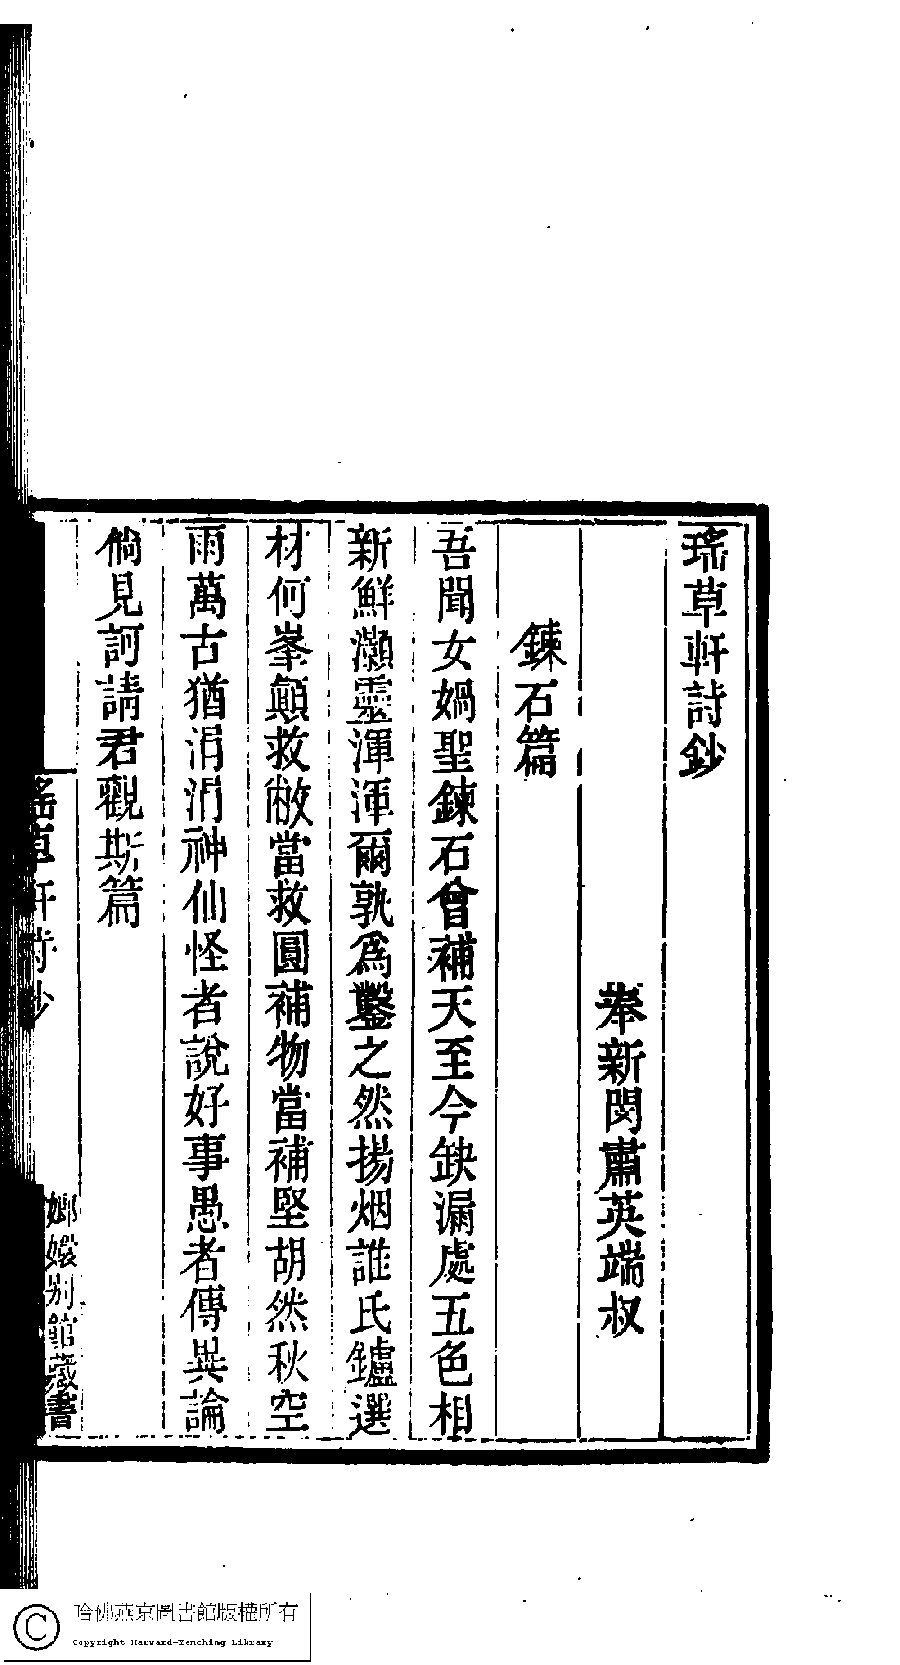 瑤草軒詩鈔
奉新閔肅英端叔
鍊石篇
吾聞女媧聖鍊石曾補天至今缺漏處五色相
新鮮灝靈渾渾爾孰爲鑿之然揚烟誰氏鑪選
材何峯顛救敝當救圓補物當補堅胡然秋空
雨萬古猶涓涓神仙怪者說好事愚者傳異論
倘見訶請君觀斯篇
瑤草軒詩鈔
嫏嬛別館藏書
哈佛燕京圖書館版權所有
Copyright Harvard-Yenching Library